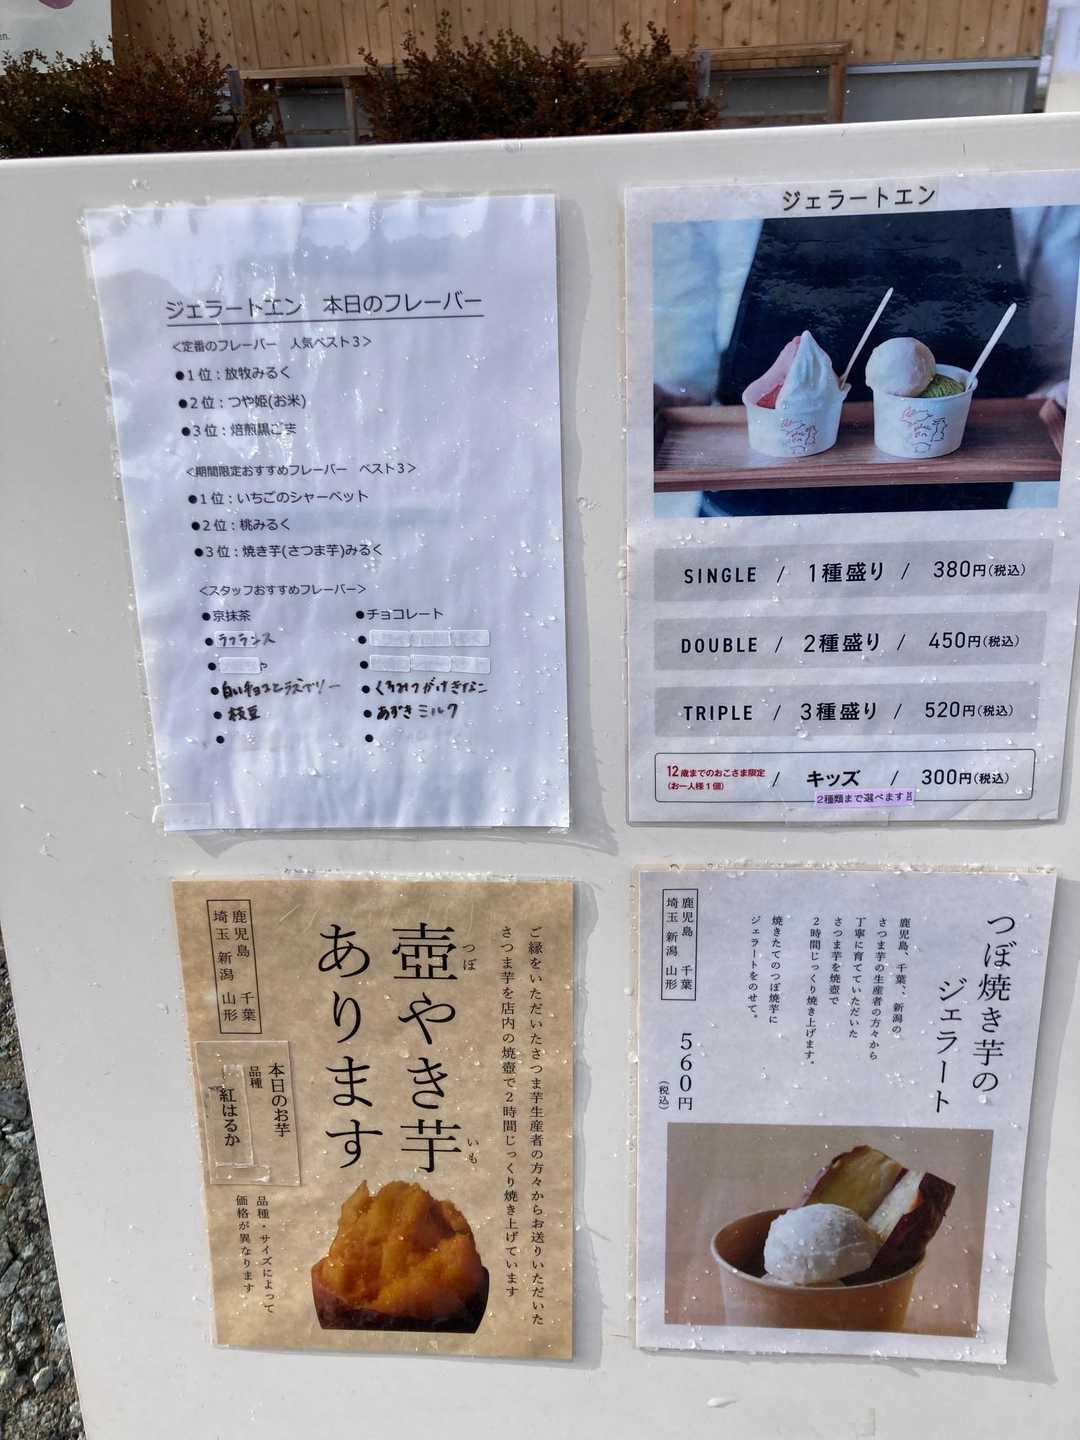 en.
ジェラートエン 本日のフレーバー
<定番のフレーバー 人気ベスト3>
●1位:放牧みるく
●2位:つや姫(お米)
●3位:焙煎黒ごま
<期間限定おすすめフレーバー ベスト3>
●1位:いちごのシャーベット
●2位:桃みるく
●3位:焼き芋(さつま芋)みるく
<スタッフおすすめフレーバー>
●京抹茶 ●チョコレート
●ラフランス
●白いチョコとラズベリー ●くろみつがけきなこ
●枝豆 ●あずきミルク
ジェラートエン
SINGLE / 1種盛り / 380円(税込)
DOUBLE / 2種盛り / 450円(税込)
TRIPLE / 3種盛り / 520円(税込)
12歳までのおこさま限定
(お一人様1個)
/ キッズ / 300円(税込)
2種類まで選べます
ご縁をいただいたさつま芋生産者の方々からお送りいただいた
さつま芋を店内の焼壺で2時間じっくり焼き上げています
壺やき芋
つぼ いも
あります
鹿児島 千葉
埼玉 新潟 山形
本日のお芋
品種
紅はるか
品種・サイズによって
価格が異なります
つぼ焼き芋の
ジェラート
鹿児島、千葉、新潟の
さつま芋の生産者の方々から
丁寧に育てていただいた
さつま芋を焼壺で
2時間じっくり焼き上げます。
焼きたてのつぼ焼芋に
ジェラートをのせて。
鹿児島 千葉
埼玉 新潟 山形
560円
(税込)